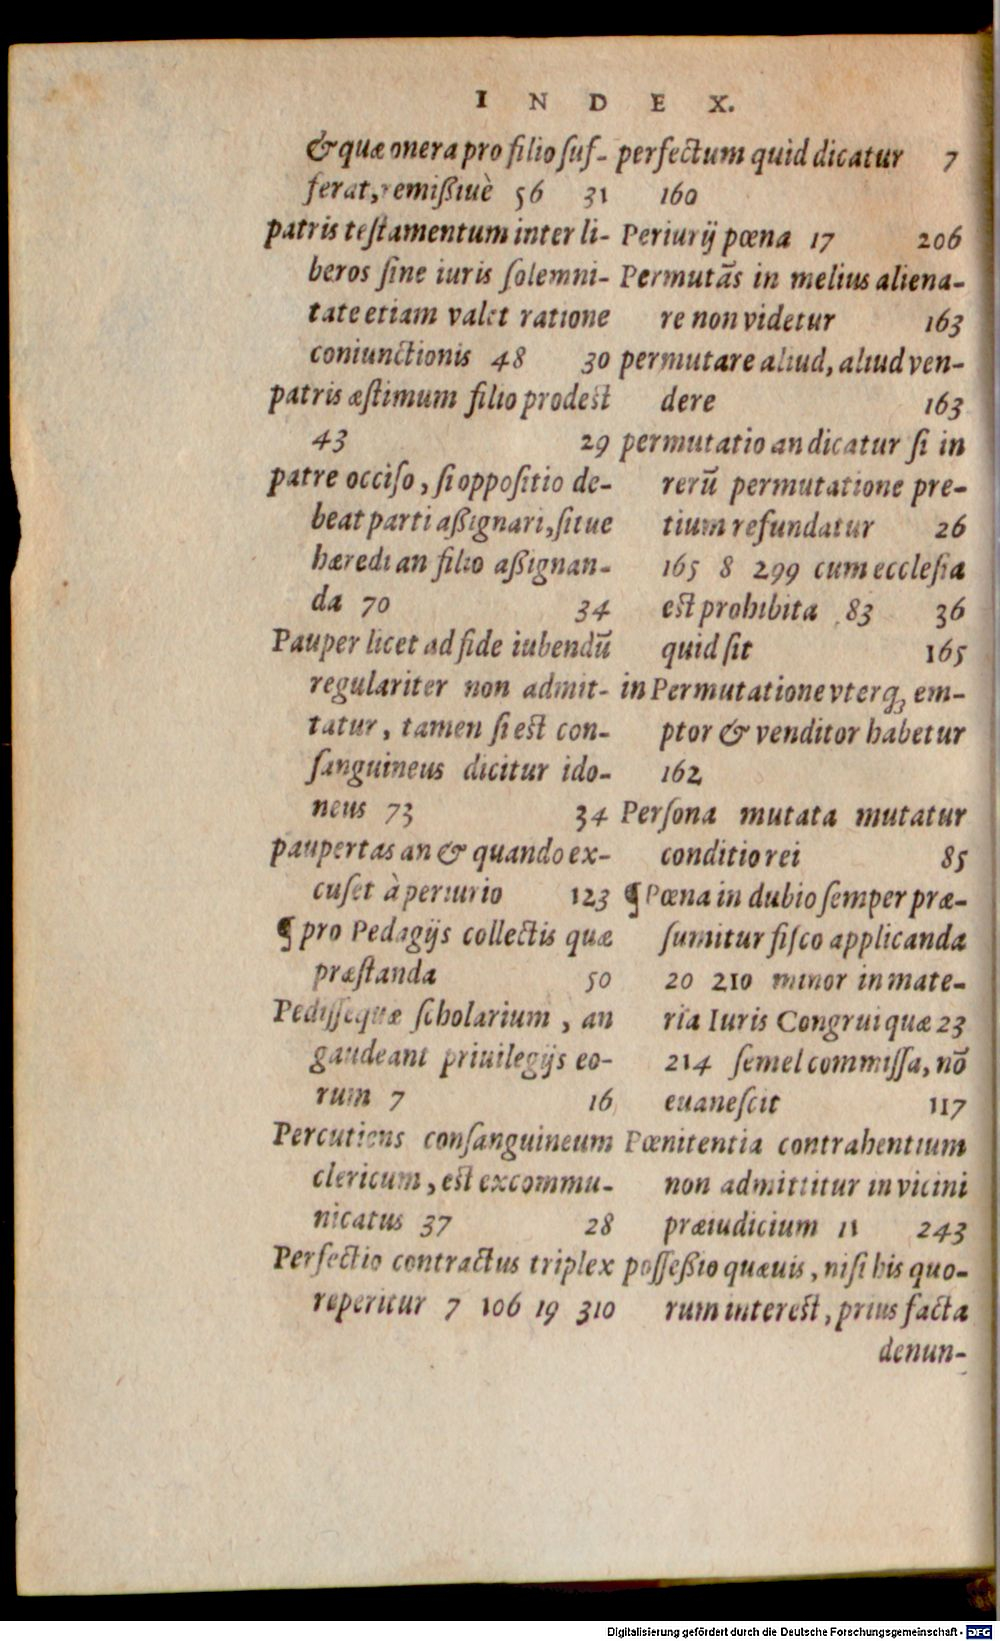 INDEX.
& quæ onera pro filio ſuf-
ferat, remißiuè 56 31
patris teſtamentum inter li-
beros ſine iuris ſolemni-
tate etiam valet ratione
coniunctionis 48 30
patris æſtimum filio prodest
43 29
patre occiſo, ſi oppoſitio de-
beat parti aßignari, ſit ue
hæredi an filio aßignan-
da 70 34
Pauper licet ad fide iubendū
regulariter non admit-
tatur, tamen ſi est con-
ſanguineus dicitur ido-
neus 73 34
paupertas an & quando ex-
cuſet à periurio 123
¶ pro Pedagijs collectis quæ
præſtanda 50
Pediſſequæ ſcholarium, an
gaudeant priuilegijs eo-
rum 7 16
Percutiens conſanguineum
clericum, est excommu-
nicatus 37 28
Perfectio contractus triplex
reperitur 7 106 19 310
perfectum quid dicatur 7
160
Periurij pœna 17 206
Permutãs in melius aliena-
re non videtur 163
permutare aliud, aliud ven-
dere 163
permutatio an dicatur ſi in
rerũ permutatione pre-
tium refundatur 26
165 8 299 cum eccleſia
est prohibita 83 36
quid ſit 165
in Permutatione vterq; em-
ptor & venditor habetur
162
Perſona mutata mutatur
conditio rei 85
¶ Pœna in dubio ſemper præ-
ſumitur fiſco applicanda
20 210 minor in mate-
ria Iuris Congrui quæ 23
214 ſemel commiſſa, nō
euaneſcit 117
Pœnitentia contrahentium
non admittitur in vicini
præiudicium 11 243
poſſeßio quæuis, niſi his quo-
rum interest, prius facta
denun-
Digitalisierung gefördert durch die Deutsche Forschungsgemeinschaft - DFG